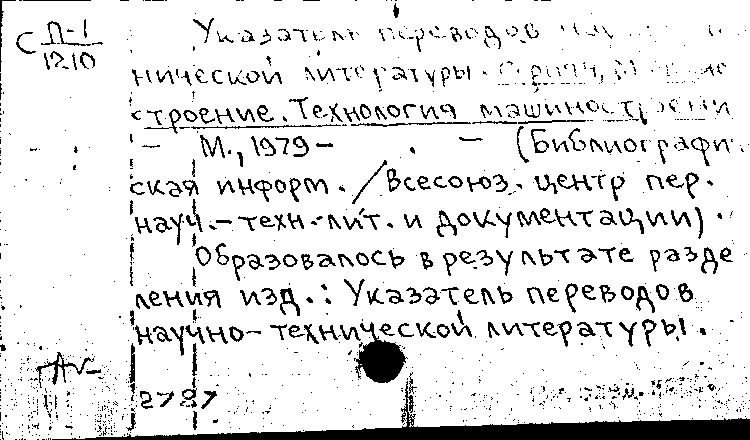 С П-1
1210
Указатель переводов
нической литературы.
строение. Технология машиностроени
М., 1979- . - (Библиографи
ская информ. / Всесоюз. центр пер.
науч.-техн. лит. и документации).
Образовалось в результате разде
ления изд.: Указатель переводов
научно-технической литературы.
2787